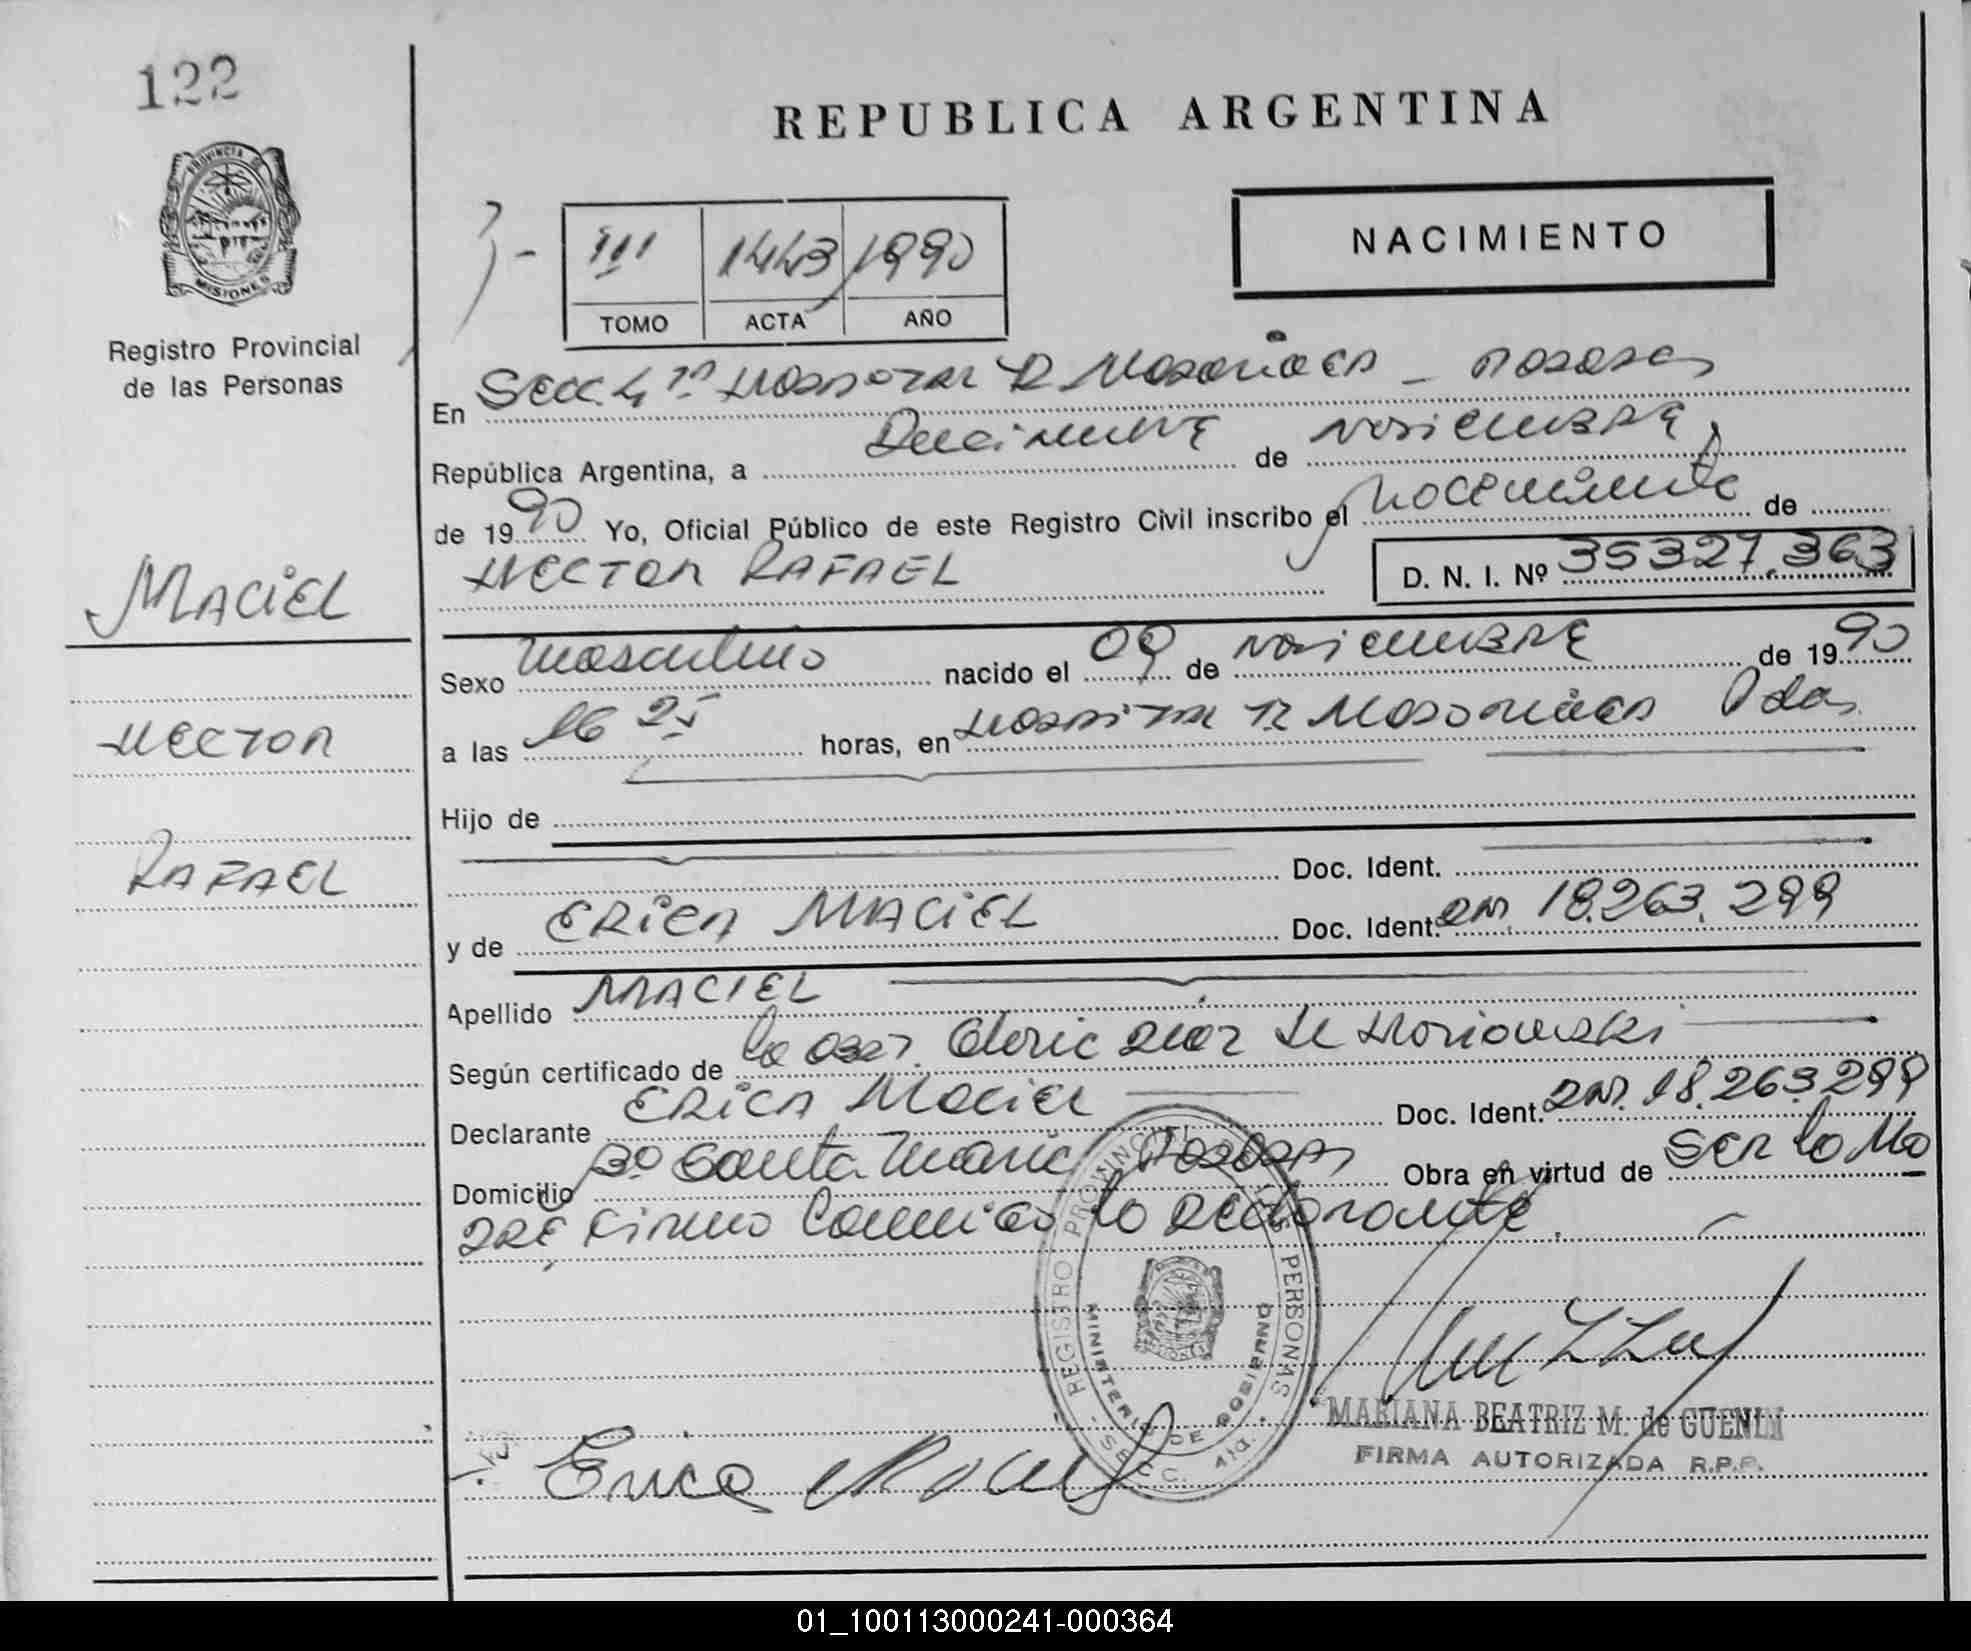 122
REPUBLICA ARGENTINA
PROVINCIA DE
MISIONES
Registro Provincial
de las Personas
III 1443 1990
TOMO ACTA AÑO
NACIMIENTO
En Secc. 4ª Hospital R Madariaga - Posadas
República Argentina, a Diecinueve de noviembre
de 1990 Yo, Oficial Público de este Registro Civil inscribo el nacimiento de
HECTOR RAFAEL
D. N. I. Nº 35327.363
MACIEL
HECTOR
RAFAEL
Sexo masculino nacido el 09 de noviembre de 1990
a las 16 25 horas, en Hospital R Madariaga Pdas
Hijo de
Doc. Ident.
y de ERICA MACIEL Doc. Ident. DNI 18.263.299
Apellido MACIEL
Según certificado de la obst.
Declarante ERICA MACIEL Doc. Ident. DNI. 18.263.299
Domicilio Bº Santa Maria Posadas Obra en virtud de ser la Ma
dre firma conmigo la declarante.
REGISTRO PROVINCIAL DE LAS PERSONAS
MINISTERIO DE GOBIERNO
SECC. 4ta.
Erica Maciel
MARIANA BEATRIZ M. de GUENIN
FIRMA AUTORIZADA R.P.P.
01_100113000241-000364